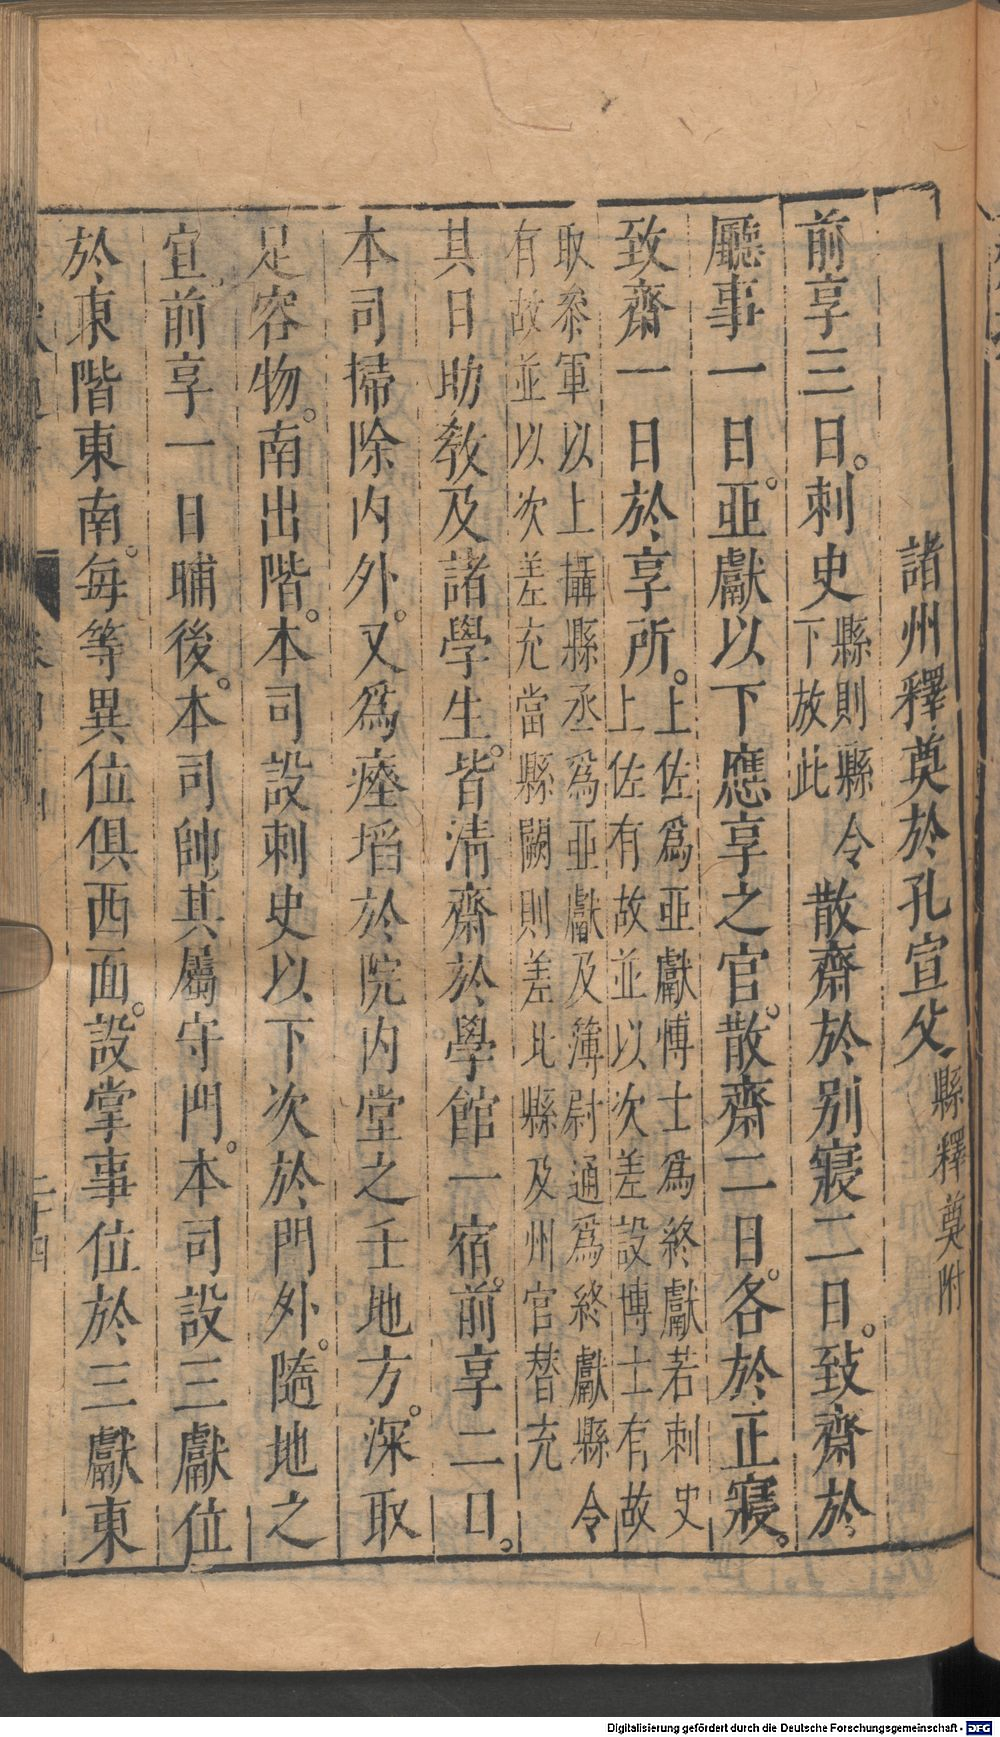 諸州釋奠於孔宣父縣釋奠附
前享三日。刺史縣則縣令下放此散齋於別寢二日。致齋於
廳事一日。亞獻以下應享之官。散齋二日。各於正寢。
致齋一日於享所。上佐爲亞獻博士爲終獻若刺史上佐有故並以次差設博士有故
取參軍以上攝縣丞爲亞獻及簿尉通爲終獻縣令有故並以次差充當縣闕則差比縣及州官替充
其日助教及諸學生。皆清齋於學館一宿。前享二日。
本司掃除內外。又爲瘞埳於院內堂之壬地方。深取
足容物。南出階。本司設刺史以下次於門外。隨地之
宜。前享一日晡後。本司帥其屬守門。本司設三獻位
於東階東南。每等異位俱西面。設掌事位於三獻東
二十四
Digitalisierung gefördert durch die Deutsche Forschungsgemeinschaft - DFG